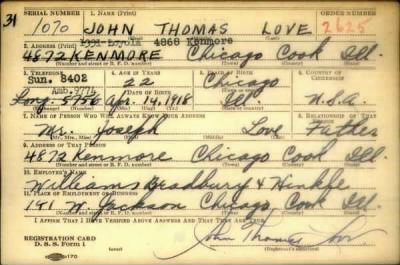 31
SERIAL NUMBER 1. NAME (Print) ORDER NUMBER
1070 JOHN THOMAS LOVE 2625
1331 Loyola 4868 Kenmore
2. ADDRESS (Print)
4872 KENMORE Chicago Cook Ill.
(Number and street or R. F. D. number) (Town) (County) (State)
3. TELEPHONE 4. AGE IN YEARS 5. PLACE OF BIRTH 6. COUNTRY OF CITIZENSHIP
Sun. 8402 22 Chicago
DATE OF BIRTH
Long. 5756 Apr. 14, 1918 Ill. U.S.A.
7. NAME OF PERSON WHO WILL ALWAYS KNOW YOUR ADDRESS 8. RELATIONSHIP OF THAT PERSON
Mr. Joseph Love Father
(Mr., Mrs., Miss) (First) (Middle) (Last)
9. ADDRESS OF THAT PERSON
4872 Kenmore Chicago Cook Ill.
(Number and street or R. F. D. number) (Town) (County) (State)
10. EMPLOYER'S NAME
Williams Bradbury & Hinkle
11. PLACE OF EMPLOYMENT OR BUSINESS
141 W. Jackson Chicago, Cook Ill.
(Number and street or R. F. D. number) (Town) (County) (State)
I AFFIRM THAT I HAVE VERIFIED ABOVE ANSWERS AND THAT THEY ARE TRUE.
REGISTRATION CARD
D. S. S. Form 1 John Thomas Love
(Registrant's signature)